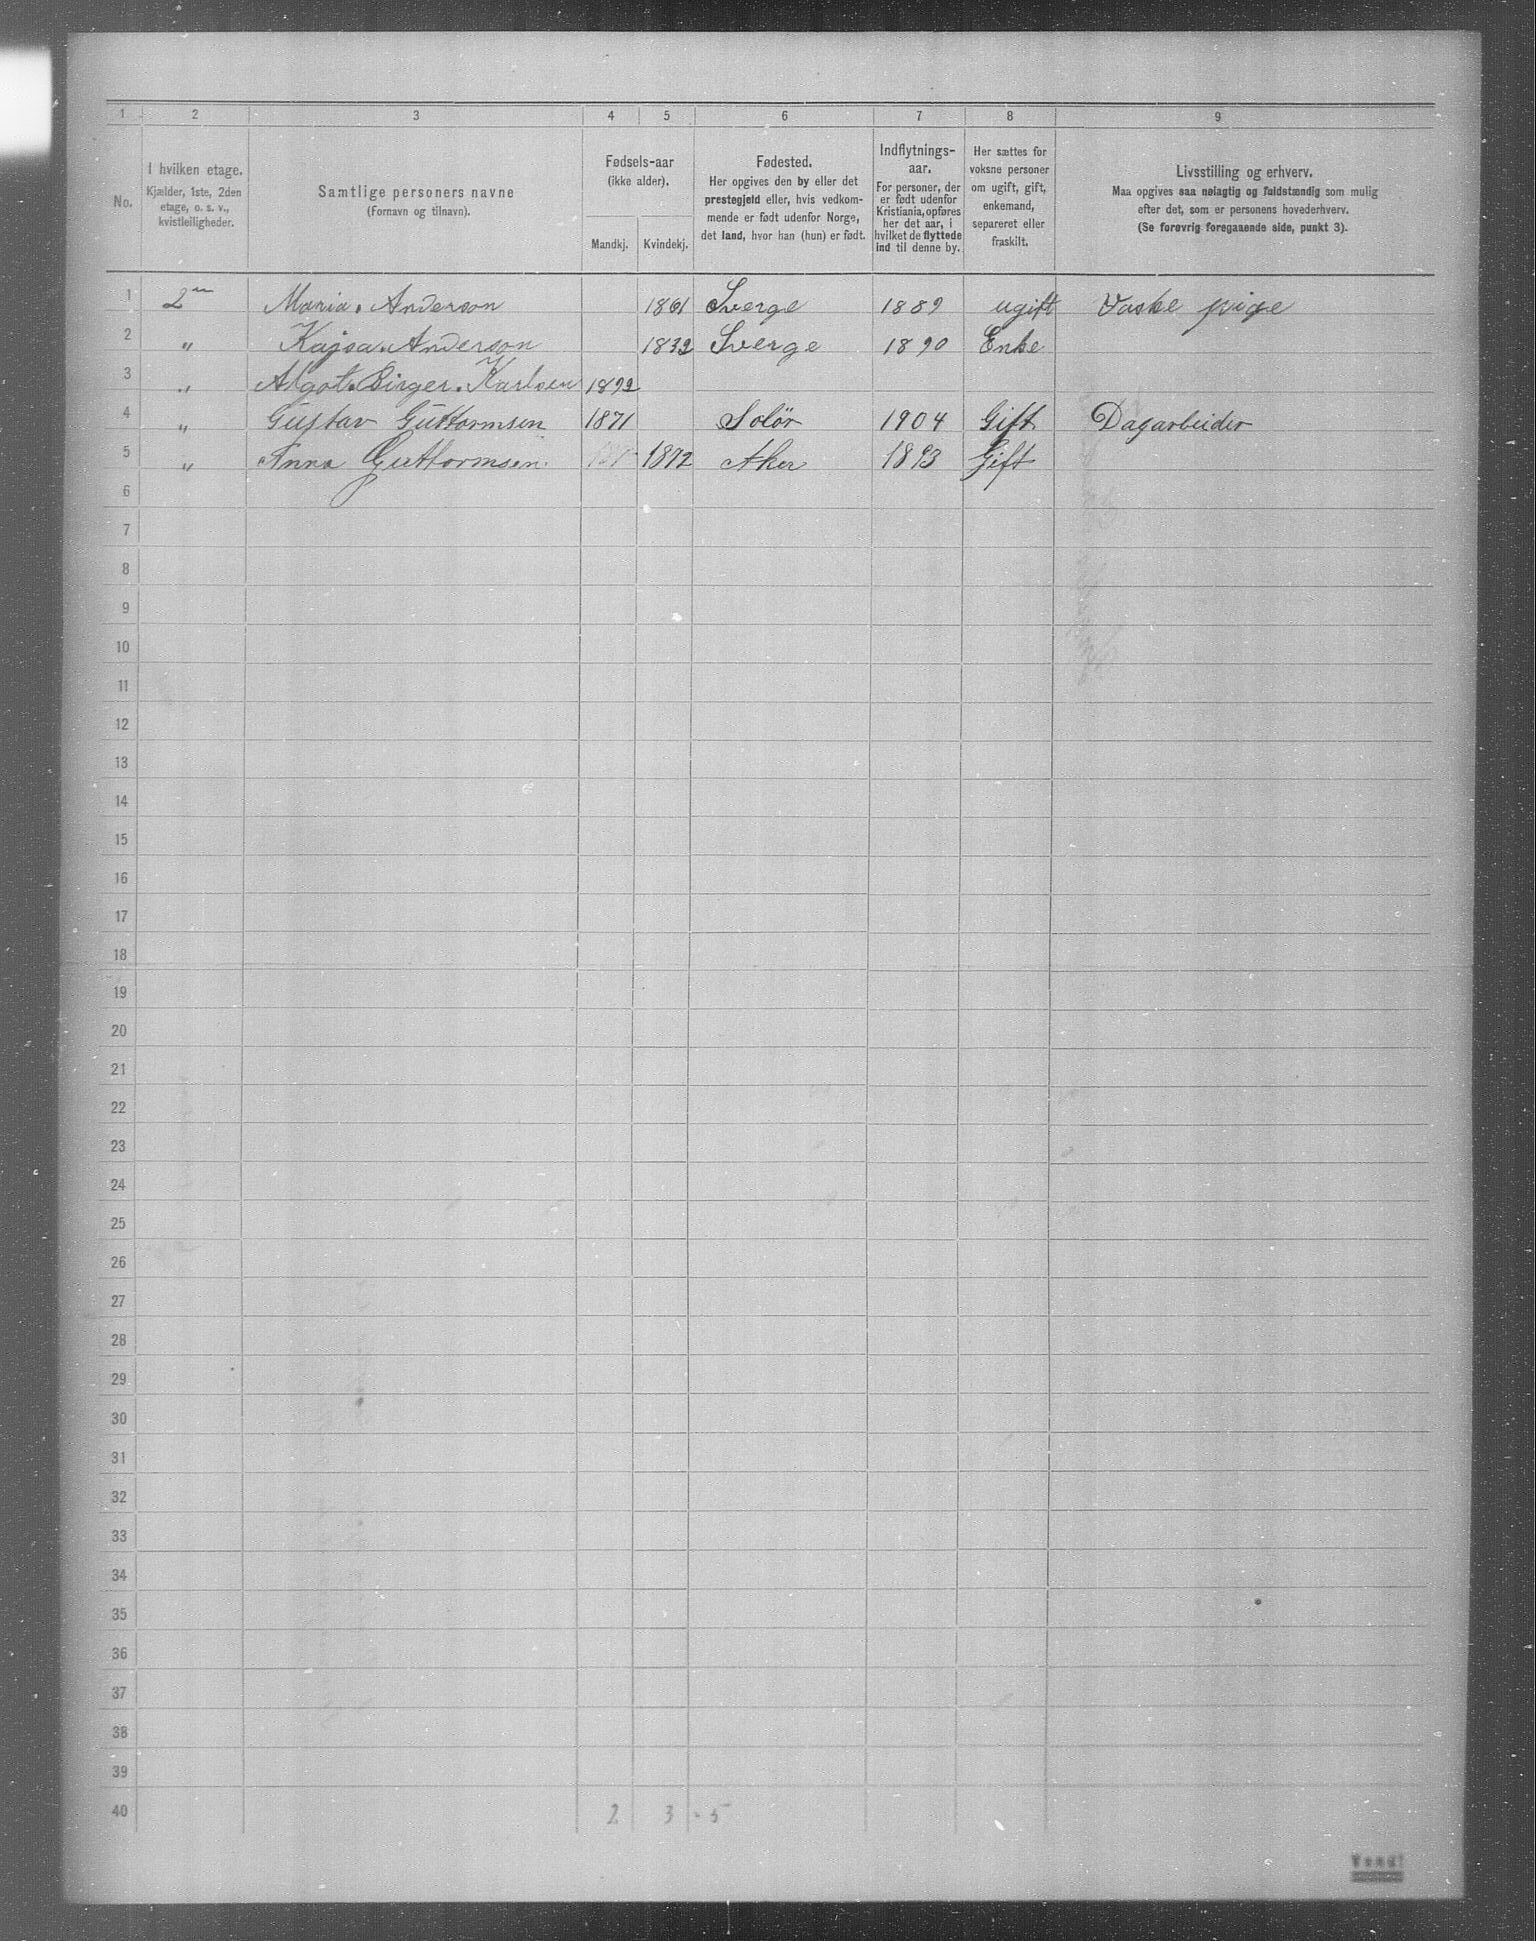 1 2 3 4 5 6 7 8 9
No.
I hvilken etage.
Kjælder, 1ste, 2den
etage, o. s. v.,
kvistleiligheder.
Samtlige personers navne
(Fornavn og tilnavn).
Fødsels-aar
(ikke alder).
Mandkj. Kvindekj.
Fødested.
Her opgives den by eller det
prestegjeld eller, hvis vedkom-
mende er født udenfor Norge,
det land, hvor han (hun) er født.
Indflytnings-
aar.
For personer, der
er født udenfor
Kristiania, opføres
her det aar, i
hvilket de flyttede
ind til denne by.
Her sættes for
voksne personer
om ugift, gift,
enkemand,
separeret eller
fraskilt.
Livsstilling og erhverv.
Maa opgives saa nøiagtig og fuldstændig som mulig
efter det, som er personens hovederhverv.
(Se forøvrig foregaaende side, punkt 3).
1 2den Maria Anderson 1861 Sverge 1889 ugift Vaske pige
2 " Kajsa Anderson 1832 Sverge 1890 Enke
3 " Algot Birger Karlsen 1892
4 " Gustav Guttormsen 1871 Solör 1904 Gift Dagarbeider
5 " Anna Guttormsen 1872 Aker 1893 Gift
6
7
8
9
10
11
12
13
14
15
16
17
18
19
20
21
22
23
24
25
26
27
28
29
30
31
32
33
34
35
36
37
38
39
40 2 3 . 5
Vend!